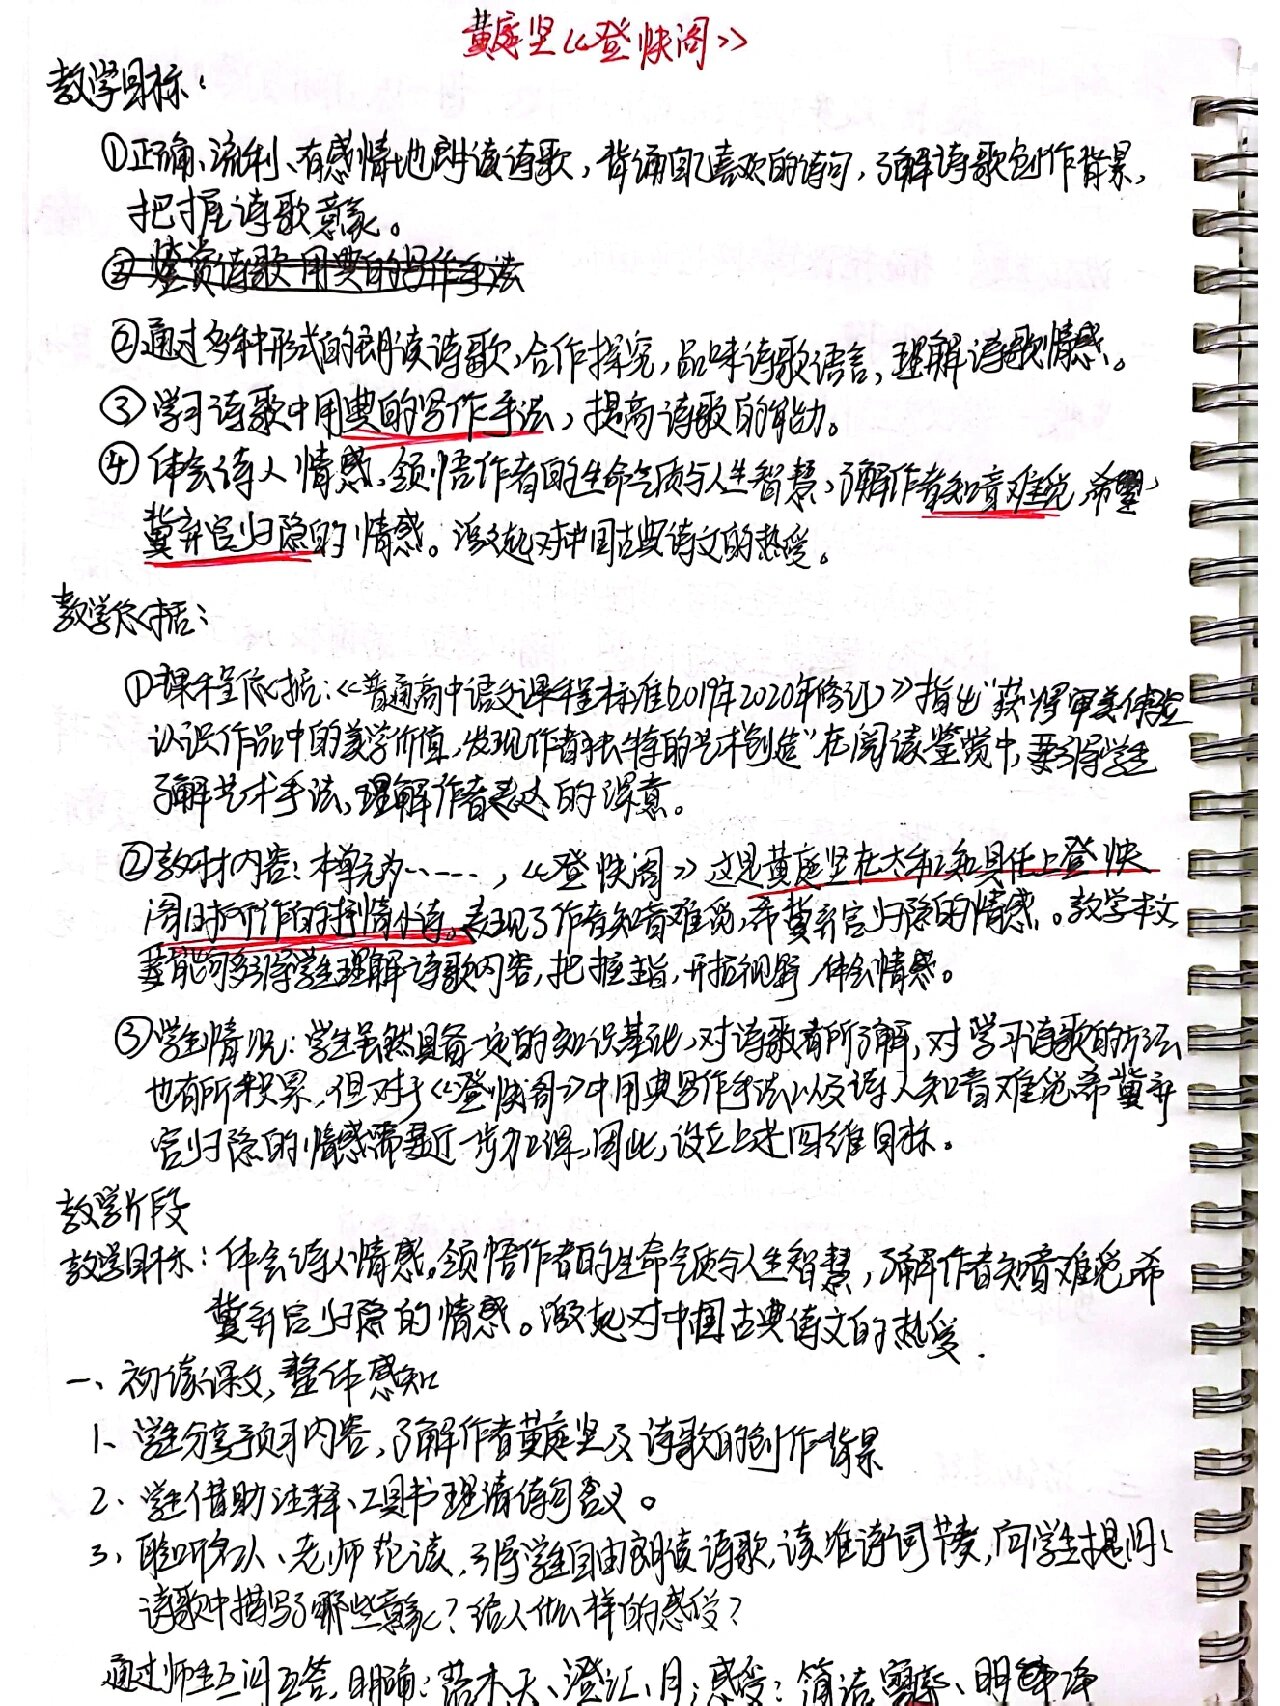 黄庭坚《登快阁》
教学目标：
①正确、流利、有感情地朗读诗歌，背诵自己喜欢的诗句，了解诗歌创作背景，
把握诗歌意象。
②鉴赏诗歌用典的写作手法
②通过多种形式的朗读诗歌，合作探究，品味诗歌语言，理解诗歌情感。
③学习诗歌中用典的写作手法，提高诗歌的能力。
④体会诗人情感，领悟作者的生命气质与人生智慧，了解作者知音难觅 希望
冀弃官归隐的情感。激起对中国古典诗文的热爱。
教学依据：
①课程依据：《普通高中语文课程标准(2017年2020年修订)》指出“获得审美体验
认识作品中的美学价值，发现作者独特的艺术创造”在阅读鉴赏中，要引导学生
了解艺术手法，理解作者表达的深意。
②教材内容：本单元为……，《登快阁》这是黄庭坚在太和知县任上登快
阁时所作的抒情小诗。表现了作者知音难觅，希冀弃官归隐的情感。教学本文
要能够引导学生理解诗歌内容，把握主旨，开拓视野，体会情感。
③学生情况：学生虽然具备一定的知识基础，对诗歌有所了解，对学习诗歌的方法
也有所积累，但对于《登快阁》中用典写作手法以及诗人知音难觅希冀弃
官归隐的情感需要进一步加深，因此，设立上述四维目标。
教学片段
教学目标：体会诗人情感，领悟作者的生命气质与人生智慧，了解作者知音难觅，希
冀弃官归隐的情感。激起对中国古典诗文的热爱.
一、初读课文，整体感知
1、学生分享预习内容，了解作者黄庭坚及诗歌的创作背景
2、学生借助注释、工具书理清诗句含义。
3、聆听名人、老师范读，引导学生自由朗读诗歌，读准诗词节奏，向学生提问：
诗歌中描写了哪些意象？给人什么样的感受？
通过师生互问互答，明确：落木、天、澄江、月；感受：简洁、寥廓、明净